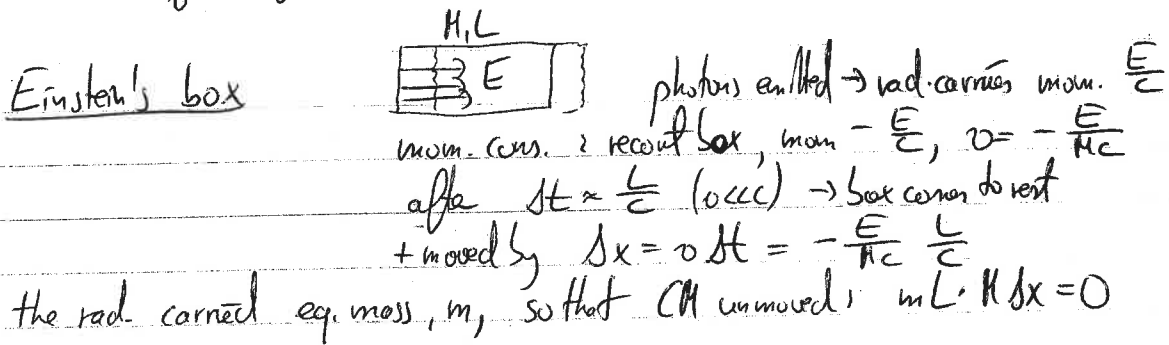 M, L
Einstein's box E photons emitted → rad. carries mom. E/c
mom. cons. : recoil box, mom - E/c, v = - E/Mc
after Δt ≈ L/c (v<<c) → box comes to rest
+ moved by Δx = v Δt = - E/Mc L/c
the rad. carried eq. mass, m, so that CM unmoved: mL + M Δx = 0